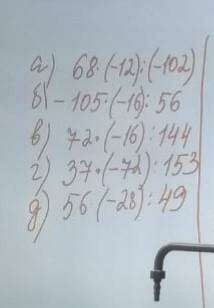 а) 68·(-12):(-102)
б) -105·(-16):56
в) 72·(-16):144
г) 37·(-72):153
д) 56·(-28):49